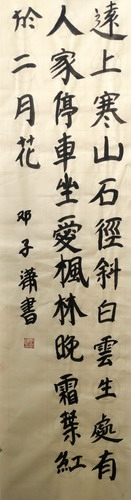 遠上寒山石徑斜白雲生處有
人家停車坐愛楓林晚霜葉紅
於二月花
邓子瀟書